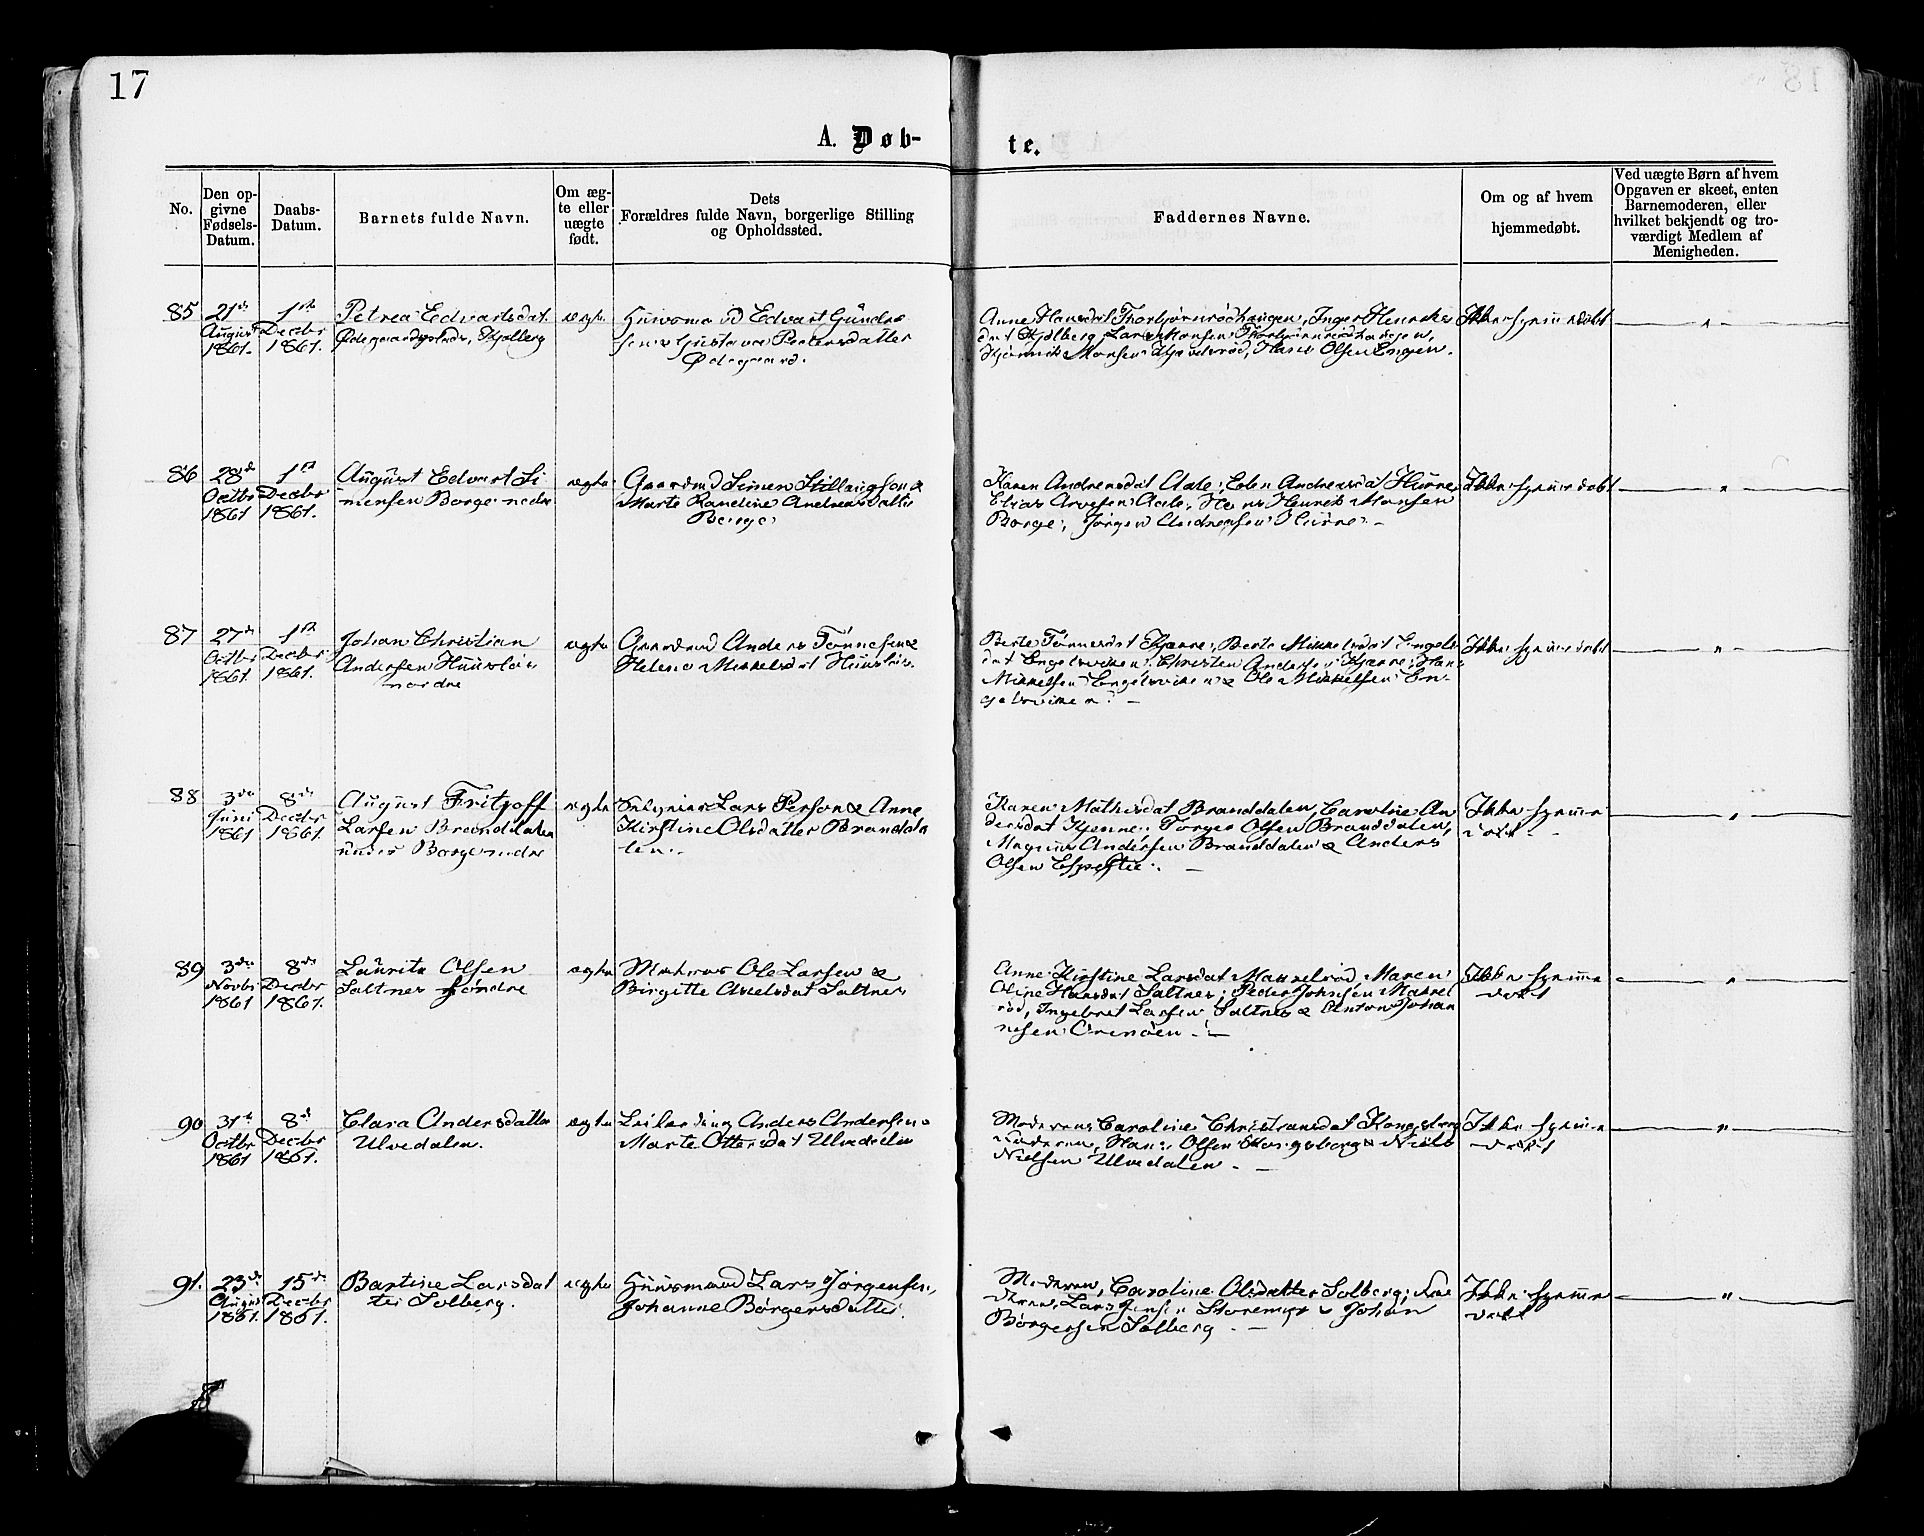 17
A. Døb-
te.
No.
Den op-
givne
Fødsels-
Datum.
Daabs-
Datum.
Barnets fulde Navn.
Om æg-
te eller
uægte
født.
Dets
Forældres fulde Navn, borgerlige Stilling
og Opholdssted.
Faddernes Navne.
Om og af hvem
hjemmedøbt.
Ved uægte Børn af hvem
Opgaven er skeet, enten
Barnemoderen, eller
hvilket bekjendt og tro-
værdigt Medlem af
Menigheden.
85
21de
August
1861.
1ste
Decbr
1861.
Petrea Edvartsdat.
Ødegaard
ægte
Huusmand Edvart Gundes
Gustava Petersdatter
Ødegaard.
Anne Hansdat Thorbjørnrødhaugen, Inger Henriks
dat Kjølberg, Lars Monsen Thorbjørnrødhaugen,
Hans Olsen Engen.
Ikke hjemmedøbt
86
28de
Octbr
1861
1ste
Decbr
1861.
August Edvart Si
mensen Borge nedre
ægte
Gaardmd Simen
Marte Andreasdatter
Borge
Karen Andreasdat Aale, Andreasdat Hunne
Elias Arvesen Aale, Hans Henrik Hansen
Borge, Jørgen Andreasen Hunne. -
Ikke hjemmedøbt
87
27de
Octbr
1861.
1ste
Decbr
1861.
Johan Christian
Andersen Huusløis
nordre
ægte
Gaardmd Anders Tønnesen &
Helene Mikkelsdat Huusløis
Berte Tønnesdat Kjærre, Berte Mikkelsdat Engels
Engelsviken, Christen Andersen Kjærre, Hans
Mikkelsen Engelsviken & Ole Mikkelsen En-
gelsviken. -
Ikke hjemmedøbt
88
3die
Juni
1861
8de
Decbr
1861.
August Fritjoff
Larsen Branddalen
under Borge nedre
ægte
Lars Person & Anne
Kirstine Olsdatter Brandda
len.
Karen Mathisdat Branddalen, Caroline An
dersdat Kjenne, Torger Olsen Branddalen,
Magnus Andersen Branddalen & Anders
Olsen -
Ikke hjemme
døbt -
89
3die
Novbr
1861
8de
Decbr
1861.
Lauritz Olsen
Saltnes søndre
ægte
Matros Ole Larsen &
Birgitte Axelsdat Saltnes
Anne Kirstine Larsdat Maren
Oline Hansdat Saltnes, Peder Johnsen
rød, Ingebret Larsen Saltnes & Anton Johan
nesen -
Ikke hjemme
døbt
90
31te
Octbr
1861
8de
Decbr
1861.
Clara Andersdatter
Ulvedalen.
ægte
Leilending Anders Andersen
Marte Ottersdat Ulvedalen
Moderen, Caroline Christiansdat Kongsberg
Faderen, Hans Olsen Kongsberg & Niels
Nielsen Ulvedalen. -
Ikke hjemme
døbt
91.
23de
August
1861.
15de
Decbr
1861.
Bartine Larsdat
ter Solberg.
ægte
Huusmand Lars Jørgensen,
Johanne Børgersdatter.
Moderen, Caroline Olsdatter Solberg, Fa
deren, Lars Jensen Storemyr & Johan
Børgersen Solberg. -
Ikke hjemme
døbt